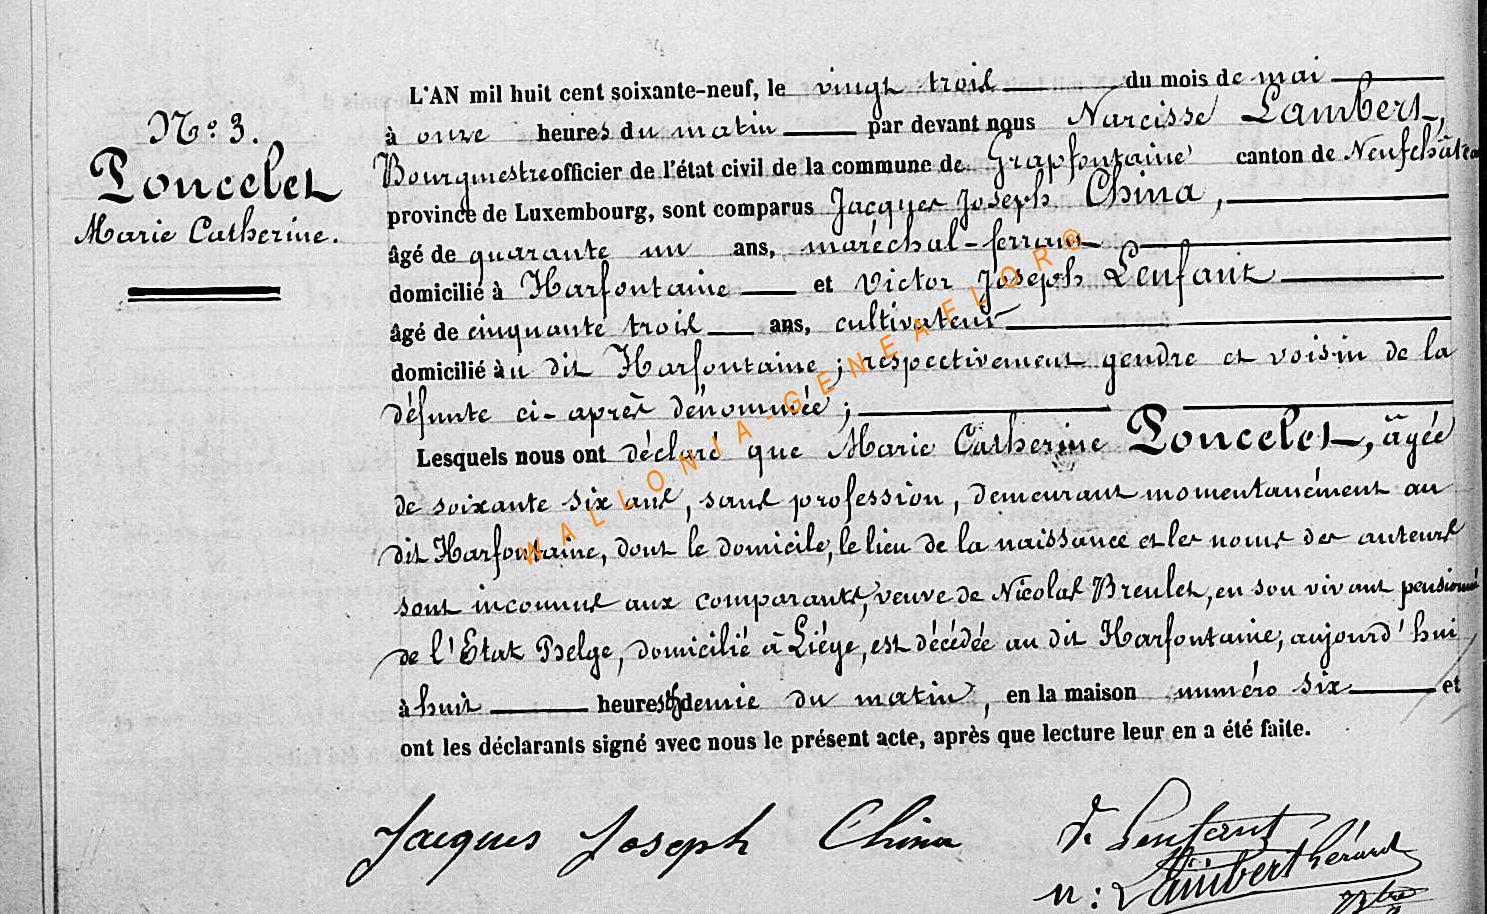 L'AN mil huit cent soixante-neuf, le vingt trois du mois de mai
N° 3.
à onze heures du matin par devant nous Narcisse Lambert,
Poncelet
Bourgmestre officier de l'état civil de la commune de Grapfontaine canton de Neufchâteau
Marie Catherine.
province de Luxembourg, sont comparus Jacques Joseph China,
âgé de quarante un ans, maréchal-ferrant
domicilié à Harfontaine et Victor Joseph Lenfant
âgé de cinquante trois ans, cultivateur
domicilié au dit Harfontaine; respectivement gendre et voisin de la
défunte ci-après dénommée;
Lesquels nous ont déclaré que Marie Catherine Poncelet, âgée
de soixante six ans, sans profession, demeurant momentanément au
dit Harfontaine, dont le domicile, le lieu de la naissance et les noms des auteurs
sont inconnus aux comparants, veuve de Nicolas Breulet, en son vivant pensionné
de l'Etat Belge, domicilié à Liége, est décédée au dit Harfontaine, aujourd'hui
à huit heures & demie du matin, en la maison numéro six et
ont les déclarants signé avec nous le présent acte, après que lecture leur en a été faite.
WALLONIA-GENEAFLOR®
Jacques Joseph China
Lenfant
N: Lambert Gérard